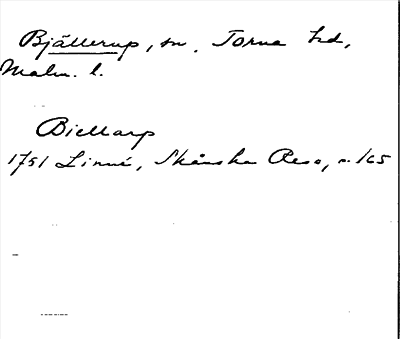 Bjällerup, sn, Torna hd,
Malm. l.
Biellarp
1751 Linné, Skånska Resa, s. 165